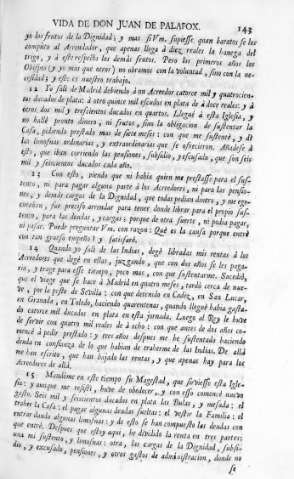 VIDA DE DON JUAN DE PALAFOX. 143
yo los frutos de la Dignidad; y mas si Vm. supiesse quan baratos se los
compito al Arrendador, que apenas llega à diez reales la hanega del
trigo, y à este respecto los demàs frutos. Pero los primeros años los
Obispos (y yo mas que otros) no obramos con la voluntad, sino con la ne-
cessidad; y este es nuestro trabajo.
12 Yo salì de Madrid debiendo à un Acreedor catorce mil y quatrocien-
tos ducados de plata: à otro quince mil escudos en plata de à doce reales: y à
otros dos mil y trescientos ducados en quartos. Lleguè à esta Iglesia, y
no hallè pronto dinero, ni frutos, sino la obligacion de sustentar la
Casa, pidiendo prestado mas de siete meses: con que me sustentè, y dì
las limosnas ordinarias, y extraordinarias que se ofrecieron. Añadese à
esto, que iban corriendo las pensiones, subsidio, y escusado, que son seis
mil y seiscientos ducados cada año.
13 Con esto, viendo que no havia quien me prestasse para el sus-
tento, ni para pagar alguna parte à los Acreedores, ni para las pensio-
nes, y demàs cargas de la Dignidad, que todas pedian dinero, y me ege-
cutaban, fue preciso arrendar para tener donde librar para el propio sus-
tento, para las deudas, y cargas: porque de otra suerte, ni podia pagar,
ni passar. Puede preguntar Vm. con razon: Què es la causa porque entrè
con tan grueso empeño? y satisfarè.
14 Quando yo salì de las Indias, dejè libradas mis rentas à los
Acreedores que dejè en ellas, juzgando, que con dos años se les paga-
ria, y traje para esse tiempo, poco mas, con que sustentarme. Sucediò,
que el viage que se hace à Madrid en quatro meses, tardè cerca de nue-
ve, por la peste de Sevilla: con que detenido en Cadiz, en San Lucar,
en Granada, en Toledo, haciendo quarentenas, quando lleguè havia gasta-
do catorce mil ducados en plata en esta jornada. Luego al Rey le hube
de servir con quatro mil reales de à ocho: con que antes de dos años co-
mencè à pedir prestado: y tres años despues me he sustentado haciendo
deuda en confianza de lo que habian de traherme de las Indias. De allà
me han escrito, que han bajado las rentas, y que apenas hay para los
Acreedores.
15 Mandòme en este tiempo su Magestad, que sirviesse esta Igle-
sia: y aunque me resistì, hube de obedecer, y con esso comencè nuevo
gasto. Seis mil y seiscientos ducados en plata las Bulas, y mesada: el
traher la Casa: el pagar algunas deudas sueltas: el vestir la Familia: el
entrar dando algunas limosnas: y de esto se han compuesto las deudas con
que entrè. Despues que estoy aqui, he dividido la renta en tres partes:
una mi sustento, y limosnas: otra, las cargas de la Dignidad, subsi-
dio, y excusado, pensiones, y otros gastos de administracion, donde no
se